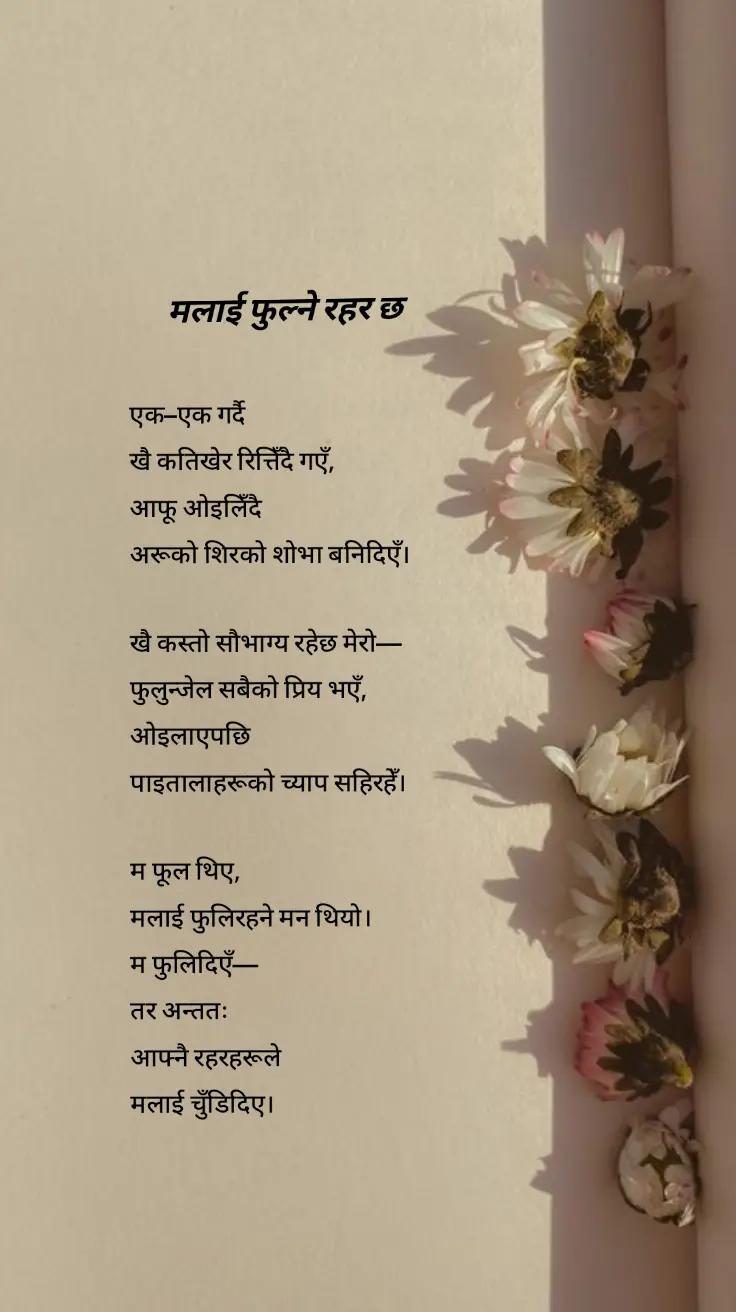 मलाई फुल्ने रहर छ
एक–एक गर्दै
खै कतिखेर रित्तिँदै गएँ,
आफू ओइलिँदै
अरूको शिरको शोभा बनिदिएँ।
खै कस्तो सौभाग्य रहेछ मेरो—
फुलुन्जेल सबैको प्रिय भएँ,
ओइलाएपछि
पाइतालाहरूको च्याप सहिरहेँ।
म फूल थिए,
मलाई फुलिरहने मन थियो।
म फुलिदिएँ—
तर अन्ततः
आफ्नै रहरहरूले
मलाई चुँडिदिए।